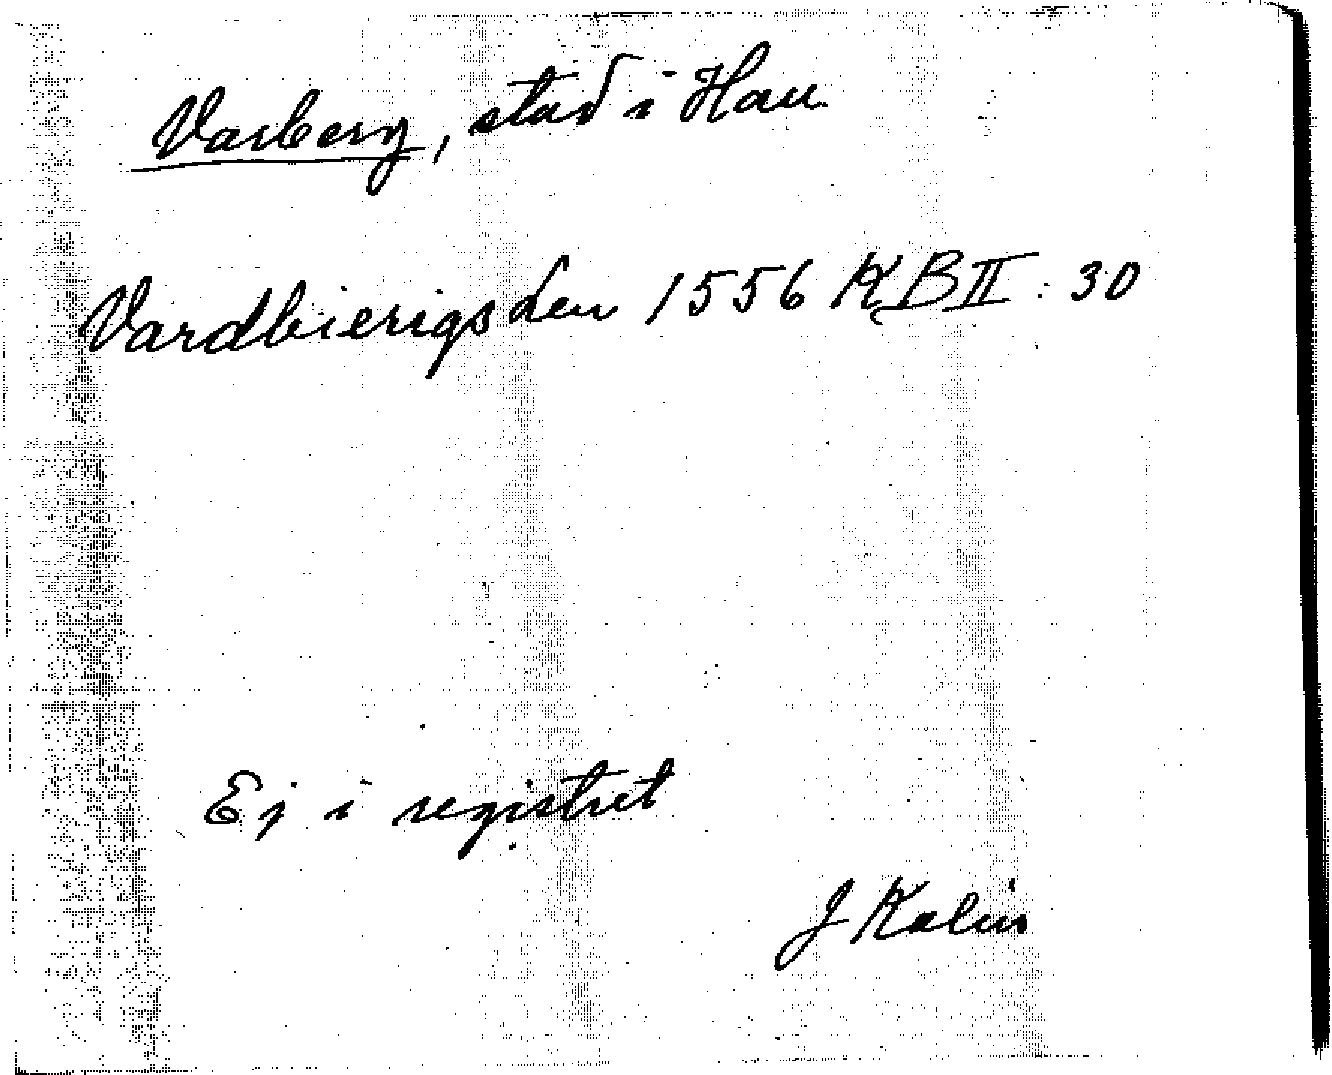 Varberg, stad i Hall
Vardbierigs den 1556 KB II : 30
Ej i registret
J Kalin